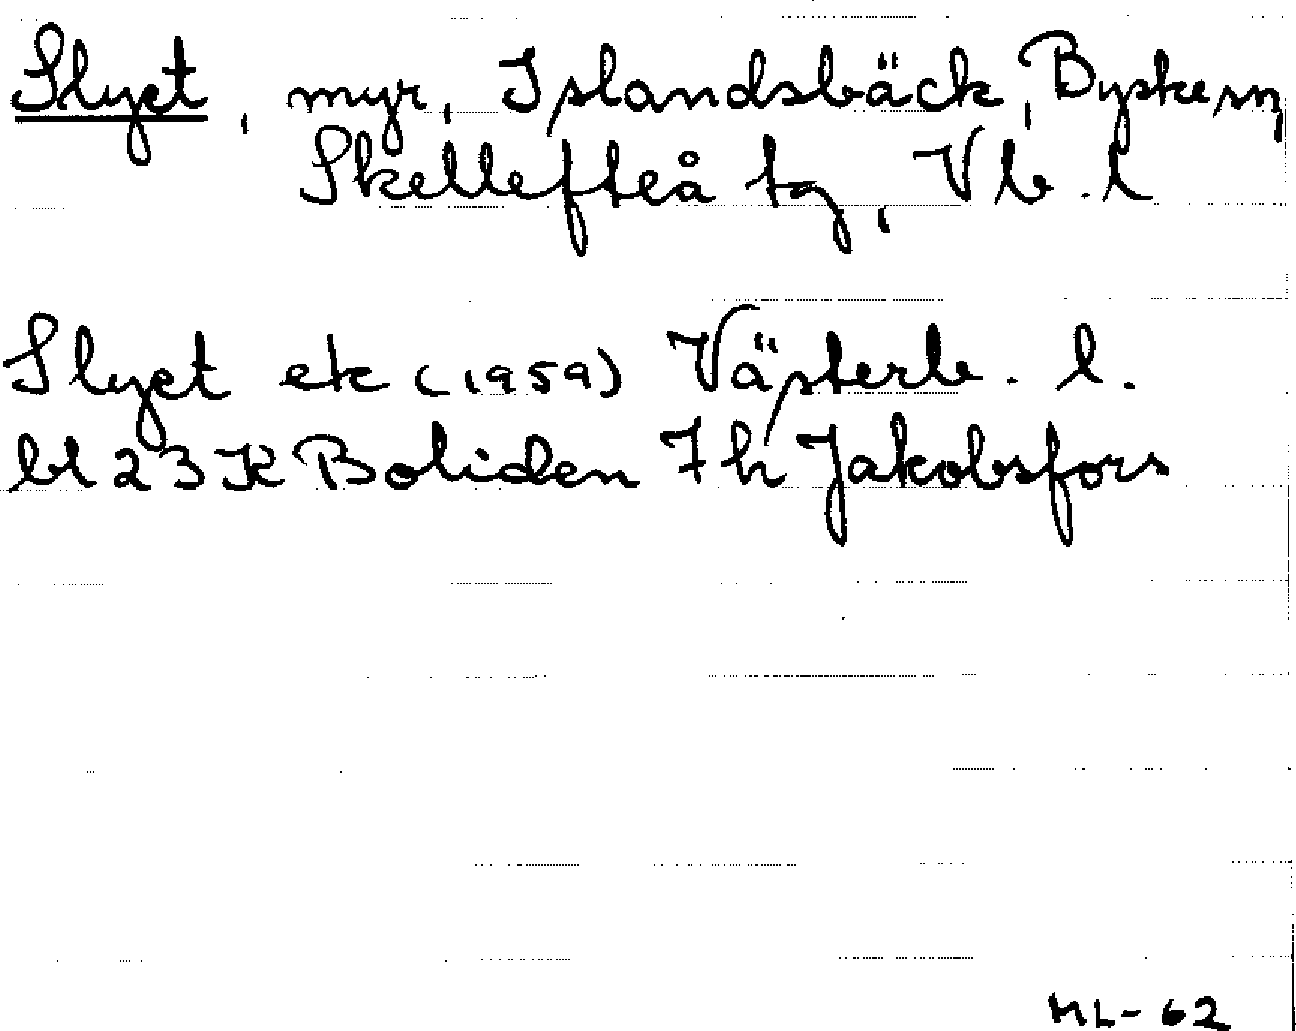 Slyet, myr, Islandsbäck, Byske sn,
Skellefteå tg, Vb. l
Slyet ek (1959) Västerb. l.
bl 23 K Boliden 7 h Jakobsfors
ML-62